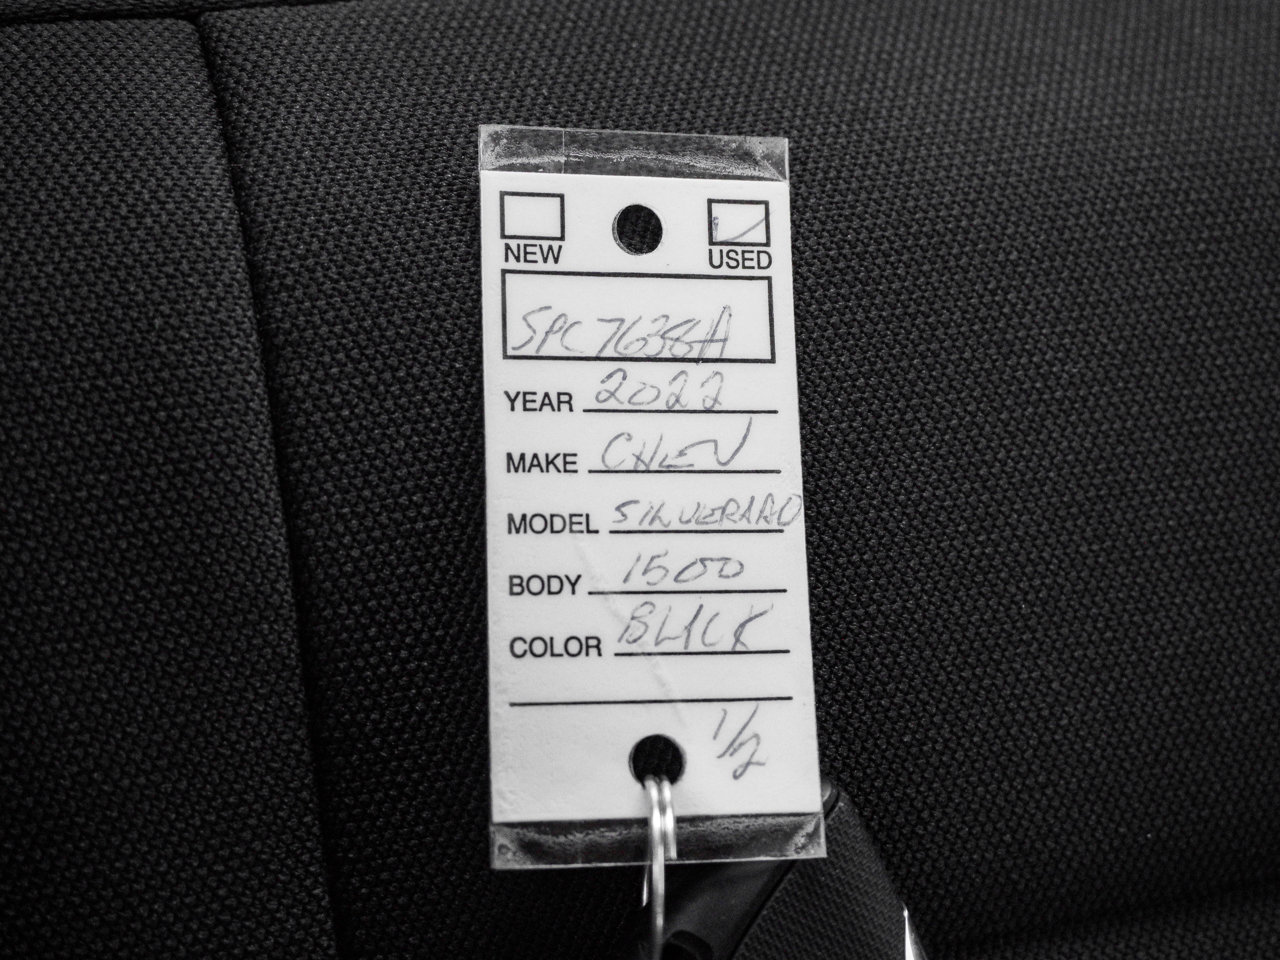 NEW USED
SPC7638A
YEAR 2022
MAKE CHEV
MODEL SILVERADO
BODY 1500
COLOR BLACK
1/2